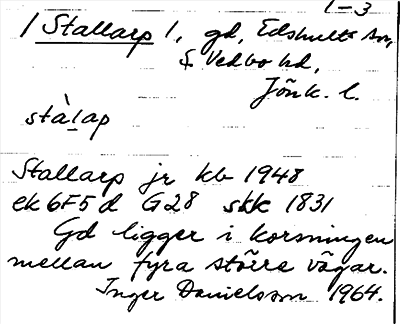 1-3
/Stallarp/, gd, Edshults sn,
S. Vedbo hd,
Jönk. l.
stàlap
Stallarp jr kb 1948
ek 6F5d G28 skk 1831
Gd ligger i korsningen
mellan fyra större vägar.
Inger Danielsson 1964.